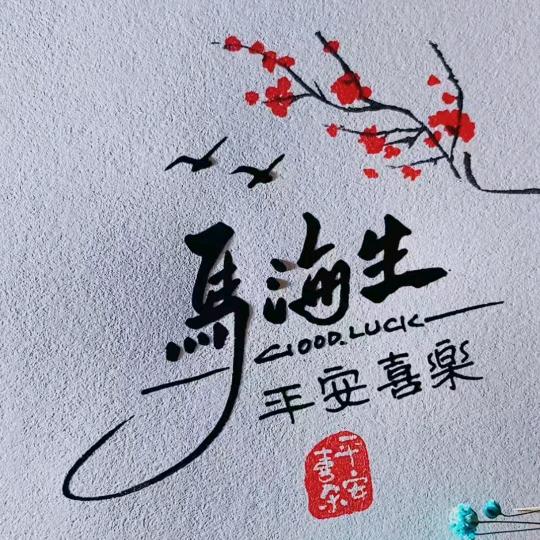 馬海生
GOOD.LUCK
平安喜樂
平安
喜乐